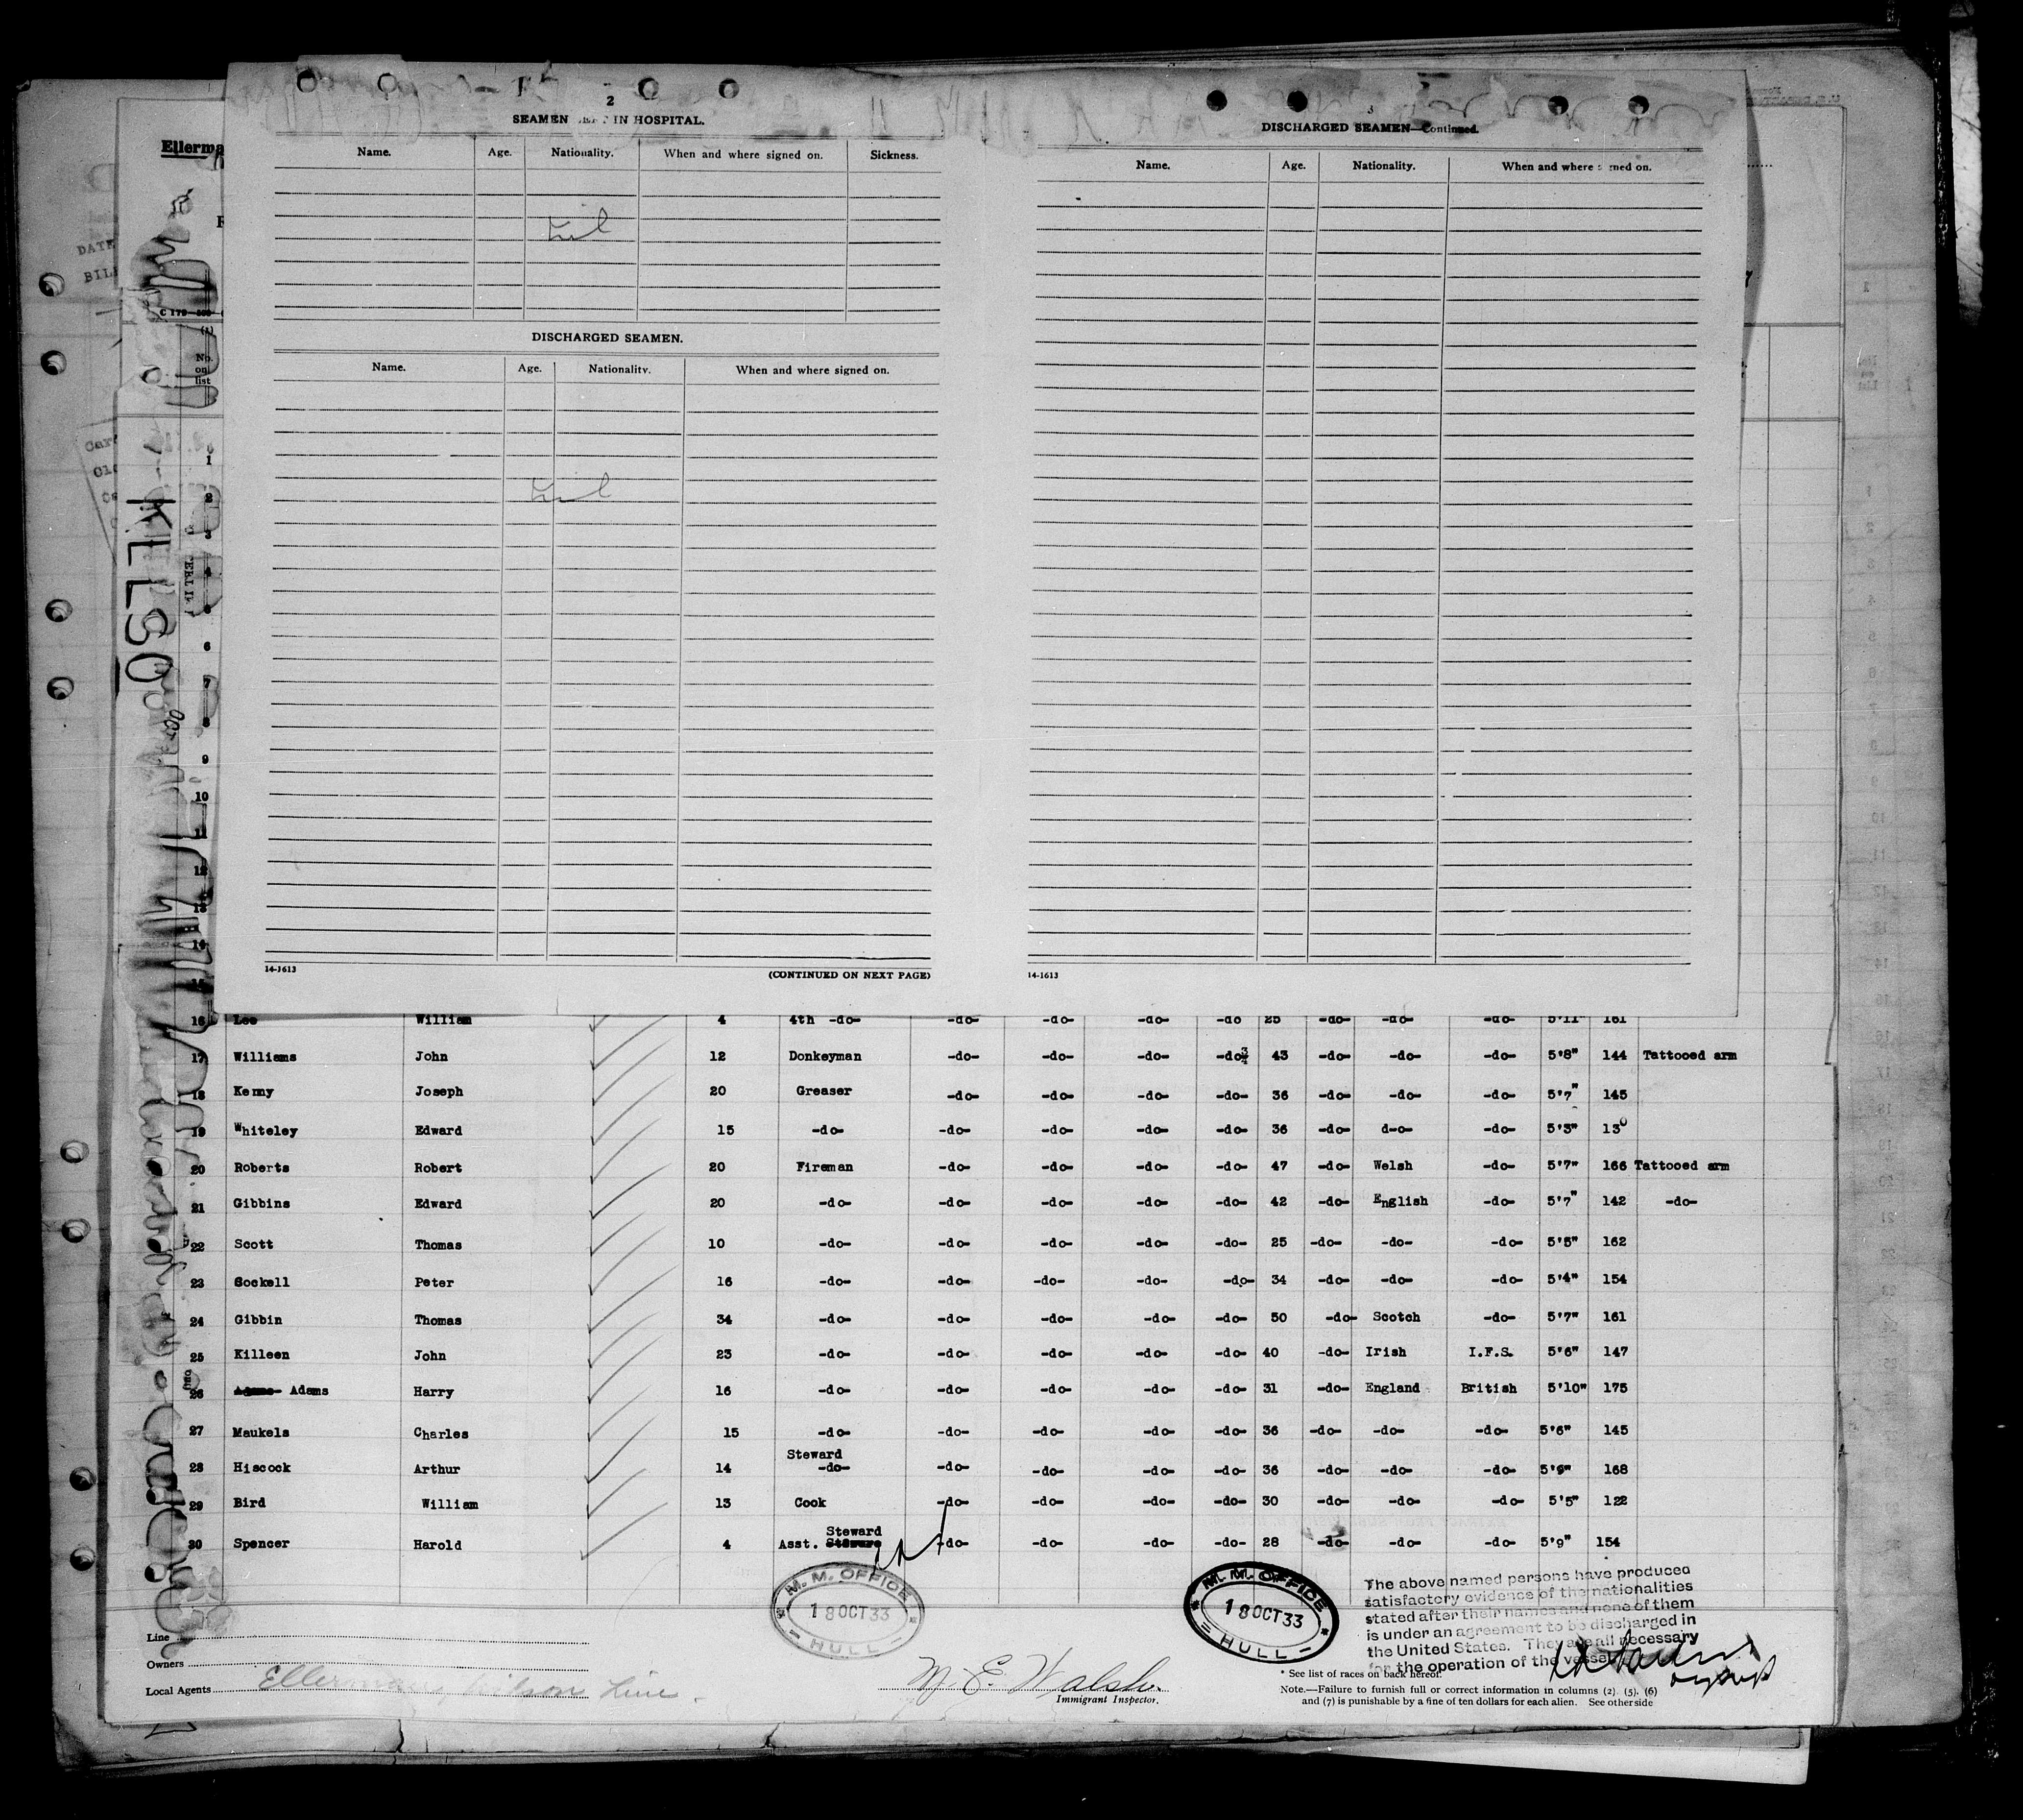 2
SEAMEN IN HOSPITAL.
Name. Age. Nationality. When and where signed on. Sickness.
Nil
DISCHARGED SEAMEN.
Name. Age. Nationality. When and where signed on.
Nil
14-1613 (CONTINUED ON NEXT PAGE)
3
DISCHARGED SEAMEN—Continued.
Name. Age. Nationality. When and where signed on.
14-1613
Ellerma
DATE
BILL
(1)
No.
on
list
KELSO
1
2
3
4
5
6
7
8
9
10
11
12
13
14
15
16 Lee William 4 4th -do- -do- -do- -do- -do 25 -do- -do- -do- 5'11" 161
17 Williams John 12 Donkeyman -do- -do- -do- -do- 43 -do- -do- -do- 5'8" 144 Tattooed arm
18 Kemy Joseph 20 Greaser -do- -do- -do- -do- 36 -do- -do- -do- 5'7" 145
19 Whiteley Edward 15 -do- -do- -do- -do- -do- 36 -do- d-o- -do- 5'3" 130
20 Roberts Robert 20 Fireman -do- -do- -do- -do- 47 -do- Welsh -do- 5'7" 166 Tattooed arm
21 Gibbins Edward 20 -do- -do- -do- -do- -do- 42 -do- English -do- 5'7" 142 -do-
22 Scott Thomas 10 -do- -do- -do- -do- -do- 25 -do- -do- -do- 5'5" 162
23 Sockell Peter 16 -do- -do- -do- -do- -do- 34 -do- -do- -do- 5'4" 154
24 Gibbin Thomas 34 -do- -do- -do- -do- -do- 50 -do- Scotch -do- 5'7" 161
25 Killeen John 23 -do- -do- -do- -do- -do- 40 -do- Irish I.F.S. 5'6" 147
26 Adams Harry 16 -do- -do- -do- -do- -do- 31 -do- England British 5'10" 175
27 Maukels Charles 15 -do- -do- -do- -do- -do- 36 -do- -do- -do- 5'6" 145
28 Hiscock Arthur 14 Steward -do- -do- -do- -do- -do- 36 -do- -do- -do- 5'9" 168
29 Bird William 13 Cook -do- -do- -do- -do- 30 -do- -do- -do- 5'5" 122
30 Spencer Harold 4 Asst. Steward -do- -do- -do- 28 -do- -do- -do- 5'9" 154
M. M. OFFICE
18 OCT 33
HULL
M. M. OFFICE
18 OCT 33
HULL
The above named persons have produced
satisfactory evidence of the nationalities
stated after their names and none of them
is under an agreement to be discharged in
the United States. They are all necessary
for the operation of the vessel
Line
Owners
Local Agents Ellermans Wilson Line.
M. E. Walsh.
Immigrant Inspector.
* See list of races on back hereof.
Note.—Failure to furnish full or correct information in columns (2), (5), (6)
and (7) is punishable by a fine of ten dollars for each alien. See other side